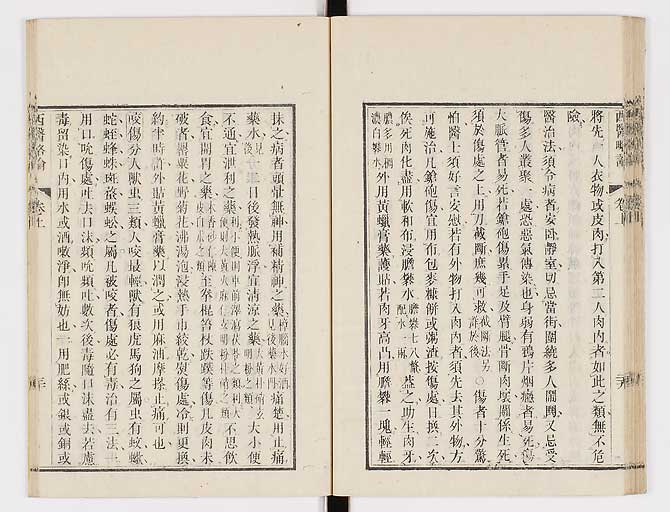 將先一人衣物或皮肉打入第二人肉內者如此之類無不危
險
醫治法須令病者安臥靜室切忌當街圍繞多人鬧闐又忌受
傷多人叢聚一處恐惡氣傳染也身弱有鴉片烟癮者易死傷
大脈管者易死若鎗砲傷累手足及臂腿骨斷肉壞關係生死
須於傷處之上用刀截斷庶幾可救截斷法另詳於後○傷者十分驚
怕醫士須好言安慰若有外物打入肉內者須先去其外物方
可施治凡鎗砲傷宜用布包麥糠餅或粥渣按傷處日換二次
俟死肉化盡用軟和布浸膽礬水膽礬七八釐配水一兩蓋之助生肉牙
膿多用稠濃白礬水外用黃蠟膏藥護貼若肉牙高凸用膽礬一塊輕輕
西醫略論 卷上
抹之病者頭暈無神用補精神之藥樟腦水好酒見後藥水門痛楚用止痛
藥水見後數日後發熱脈浮宜清涼之藥
不通宜泄利之藥 不思飲
食宜開胃之藥 至拳棍笞杖跌蹼等傷凡皮肉未
破者罌粟花野菊花沸湯泡浸熱手巾絞乾熨傷處冷則更換
約半時許外貼黃蠟膏藥以潤之或用麻油摩搽止痛可也
咬傷分人獸虫三類人咬最輕獸有狼虎馬狗之屬虫有蚊蠍
蛇蛭蜂蛛斑蝥蜈蚣之屬凡被咬者傷處必有毒治有三法一
用口吮傷處吐去口沫頻吮頻吐數次後毒隨口沫盡去若慮
毒留染口內用水或酒噉淨卽無妨也一用肥絲或銀或銅或
西醫略論 卷上